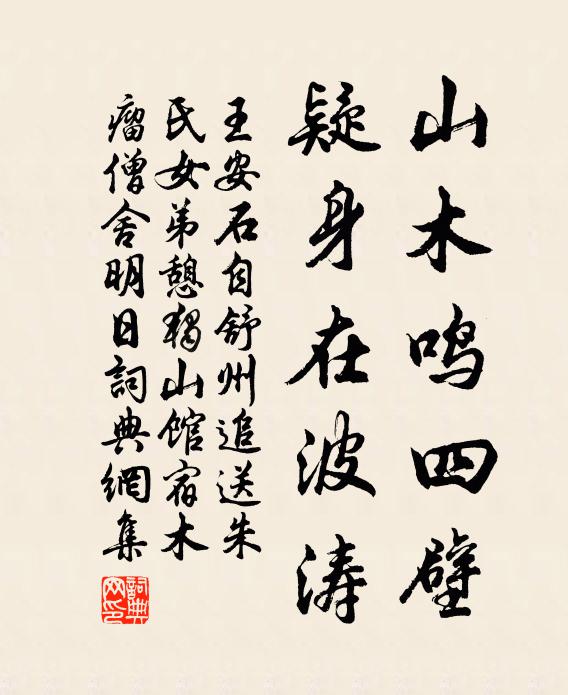 山木鸣四壁
疑身在波涛
王安石自舒州追送朱
氏女弟憩独山馆宿木
瘤僧舍明日詞典網集
詞典網印